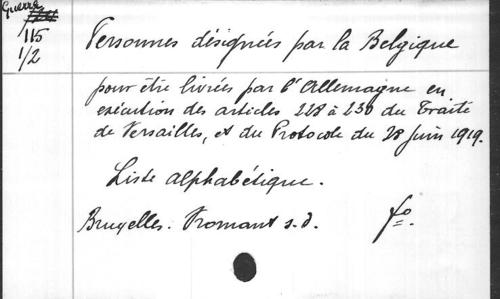 Guerre
115
1/2
Personnes désignées par la Belgique
pour être livrées par l'Allemagne en
exécution des articles 228 à 230 du Traité
de Versailles, et du Protocole du 28 juin 1919.
Liste alphabétique.
Bruxelles. Fromant s.d. fo.